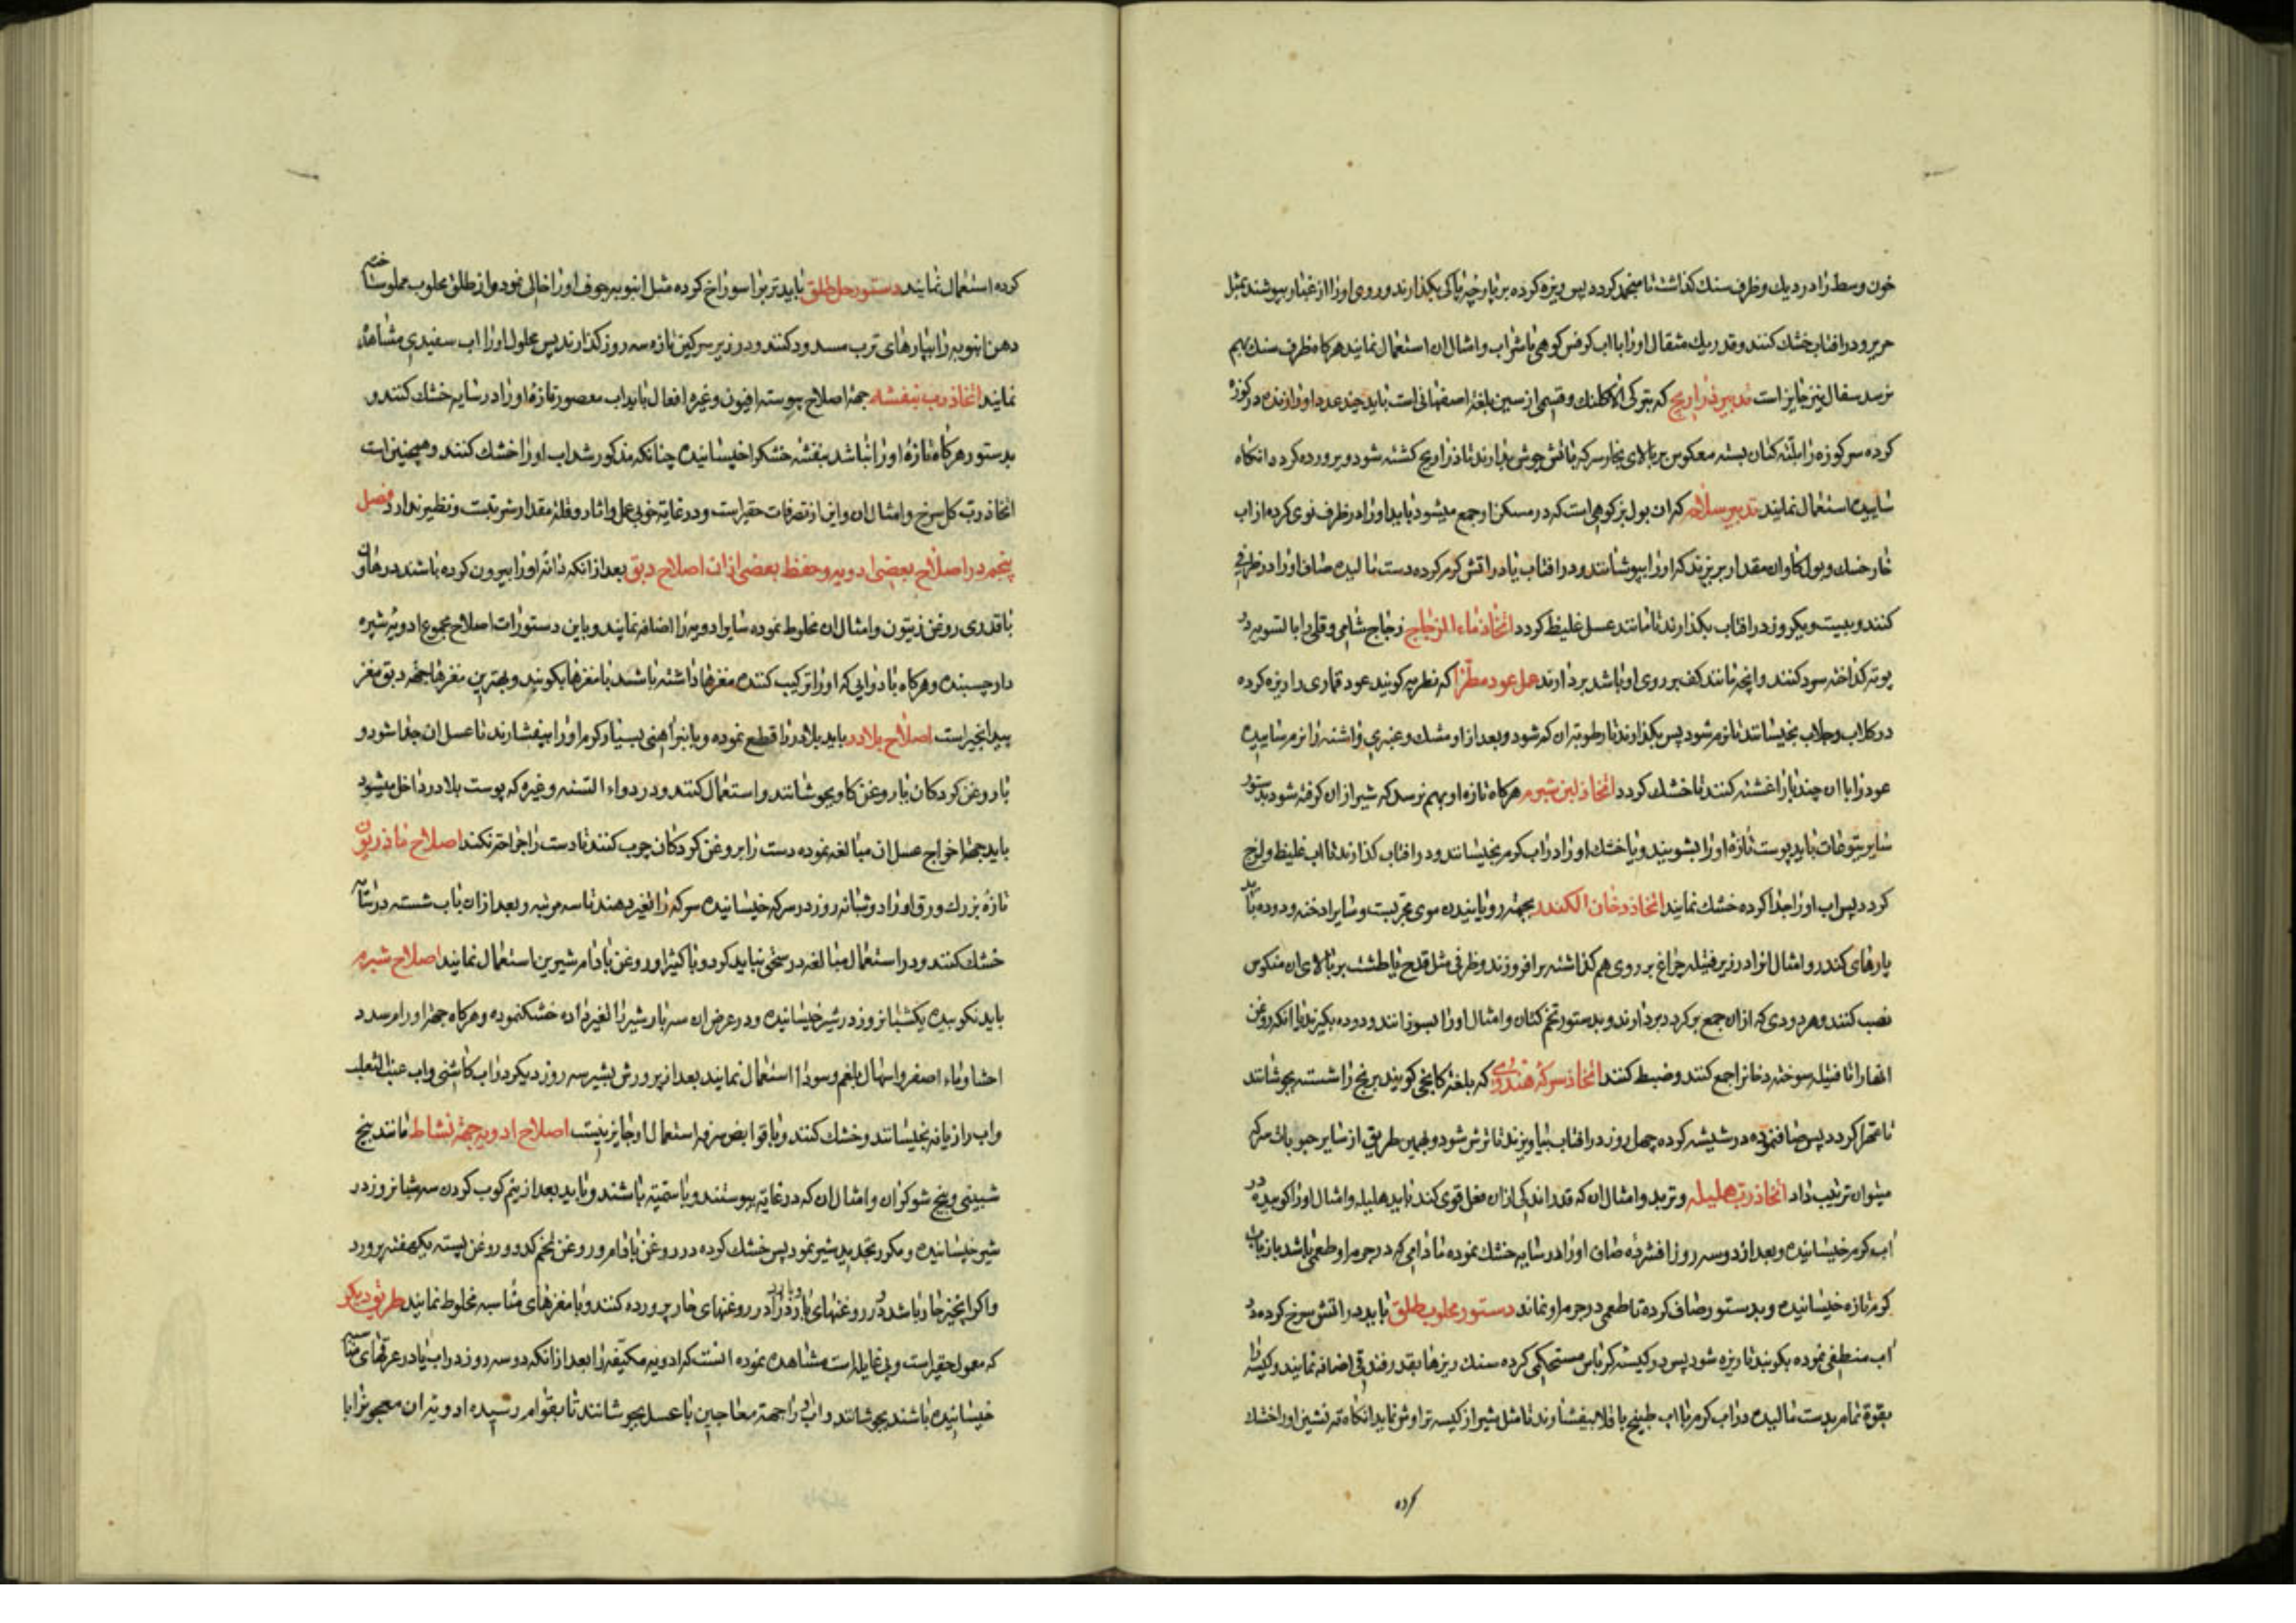 خون وسط را در دیك و ظرف سنك كذاشت تا منجمد كردد پس ریزه كرده بر پارچهٔ پاكی بكذارند و روی او را از غبار بپوشند بمثل
حریر و در افتاب خشك كنند و قدر یك مثقال او را با اب كرفس كوهی یا شراب و امثال ان استعمال نمایند هركاه ظرف سنك بهم
نرسد سفال نیز جایز است تدبیر ذراریح كه بتركی الاكلنك و قسمی از سین بلغة اصفهانی است باید چند عدد او را زنده در كوزه
كرده سر كوزه را بلتهٔ كتان بسته معكوس بر بالای بخار سركه باتش جوش بدارند تا ذراریح كشته شود و پرورده كردد انكاه
ساییده استعمال نمایند تدبیر سلاجه كه ان بول بز كوهی است كه در مسكن او جمع میشود باید او را در ظرف نوی كرده از اب
خارخسك و بول كاو ان مقدار بریزند كه او را بپوشانند و در افتاب یا در اتش كرم كرده دست مالیده صاف او را در ظرفی
كنند و بیست و یكروز در افتاب بكذارند تا مانند عسل غلیظ كردد اتخاذ ماء الزجاج زجاج شامی و قلی را بالسویه در
بوته كداخته سرد كنند و انچه مانند كف بر روی او باشد بردارند عمل عود مطرّا كه مطریه كویند عود قماری را ریزه كرده
در كلاب و جلاب بخیسانند تا نرم شود پس بكذارند تا رطوبة ان كم شود و بعد از او مشك و عنبر و اشنه را نرم ساییده
عود را با ان چند بار اغشته كنند تا خشك كردد اتخاذ لبن شبرم هركاه تازهٔ او بهم نرسد كه شیر از ان كرفته شود بدستور
سایر یتوعات باید پوست تازهٔ او را بشویند و یا خشك او را در اب كرم بخیسانند و در افتاب كذارند تا اب غلیظ و لزج
كردد پس اب او را جدا كرده خشك نمایند اتخاذ دخان الكندر بجهة رویانیدن موی مجربست و سایر ادخنه و دوده باید
پارهای كندر و امثال انرا در زیر فتیله چراغ بر روی هم كذاشته برافروزند و ظرفی مثل قدح یا طشت بر بالای ان منكوس
نصب كنند و هر دودی كه از ان جمع بركردد بردارند و بدستور تخم كتان و امثال او را بسوزانند و دوده بكیرند یا انكه روغن
انها را تا فتیله سوخته دخانرا جمع كنند و ضبط كنند اتخاذ سركهٔ هندوی كه بلغتهٔ كانجی كویند برنج را شسته بجوشانند
تا مهرا كردد پس صافنموده در شیشه كرده چهل روز در افتاب بیاویزند تا ترش شود و بهمین طریق از سایر حبوبات سركه
میتوان ترتیب داد اتخاذ ربّ هلیله و تربد و امثال ان كه قدر اندكی از ان فعل قوی كند باید هلیله و امثال او را كوبیده در
اب كرم خیسانیده و بعد از دو سه روز افشرده صاف او را در سایه خشك نموده مادامی كه در جرم او طعمی باشد باز باب
كرم تازه خیسانیده و بدستور صاف كرده تا طعمی در جرم او نماند دستور محلوب طلق باید در اتش سرخ كرده در
اب منطفی نموده بكوبند تا ریزه شود پس در كیسهٔ كرباس مستحكمی كرده سنك ریزها بقدر فندقی اضافه نمایند و كیسه را
بقوة تمام بدست مالیده در اب كرم یا اب طبیخ باقلا بیفشارند تا مثل شیر از كیسه تراوش نماید انكاه ته نشین او را خشك
كرده
كرده استعمال نمایند دستور حل طلق باید ترب را سوراخ كرده مثل انبوبه جوف او را خالی نمود و از طلق محلوب مملو ساخته
دهن انبوبه را بپارهای ترب مسدود كنند و در زیر سركین تازه سه روز كذارند پس محلول او را اب سفیدی مشاهده
نمایند اتخاذ رب بنفشه جهة اصلاح یبوسته افیون و غیره افعال باید اب معصور تازهٔ او را در سایه خشك كنند و
بدستور هركاه تازهٔ او را نباشد بنفشه خشكرا خیسانیده چنانكه مذكور شد اب او را خشك كنند و همچنین است
اتخاذ ربّ كل سرخ و امثال ان و این از تصرفات حقیر است و در غایة خوبی عمل و اثار و قلة مقدار شربتست و نظیر ندارد فصل
پنجم در اصلاح بعضی ادویه و حفظ بعضی از ان اصلاح دبق بعد از انكه دانهٔ او را بیرون كرده باشند در هاون
با قدری روغن زیتون و امثال ان مخلوط نموده سایر ادویه را اضافه نمایند و باین دستور است اصلاح مجموع ادویهٔ شیره
دار چسبنده و هركاه با دوایی كه او را تركیب كنند مغزها داشته باشند با مغزها بكوبند و بهترین مغزها جهة دبق مغز
بیدانجیر است اصلاح بلادر باید بلادر را قطع نموده و یا بنرِ اهنی بسیار كرم او را بیفشارند تا عسل ان جدا شود و
با روغن كردكان یا روغن كاو بجوشانند و استعمال كنند و در دواء السنه و غیره كه پوست بلادر داخل میشود
باید جهة اخراج عسل ان مبالغه نموده دست را بروغن كردكان چوب كنند تا دست را جراحة نكند اصلاح ماذریون
تازهٔ بزرك ورق او را دو شبانه روز در سركه خیسانیده سركه را تغیر دهند تا سه مرتبه و بعد از ان باب شسته در سایه
خشك كنند و در استعمال مبالغه در سحق نباید كرد و با كتیرا و روغن بادام شیرین استعمال نمایند اصلاح شبرم
باید نكوبیده یكشبانروز در شیر خیسانیده و در عرض ان سه بار شیر را تغیر داده خشكنموده و هركاه جهة اورام سدد
احشا و ماء اصفر و اسهال بلغم و سودا استعمال نمایند بعد از پرورش بشیر سه روز دیكر در اب كاشنی و اب عنب الثعلب
و اب رازیانه بخیسانند و خشك كنند و با قوابض صرفه استعمال او جایز نیست اصلاح ادویه جهة نشاط مانند بنج
شبینی و بنج شوكران و امثال ان كه در غایة یبوستند و با سمّیّة باشند و باید بعد از نیم كوب كردن سه شبانروز در
شیر خیسانیده و مكرر تجدید شیر نمود پس خشك كرده در روغن بادام و روغن تخم كدو و روغن پسته یكهفته پرورد
و اكر انچیز حار باشد در روغنهای بارد و بارد را در روغنهای حار پرورده كنند و با مغزهای مناسبه مخلوط نمایند طریق دیكر
كه معمول حقیر است و بی غایله است مشاهده نموده انست كه ادویه مكیّفه را بعد از انكه دو سه روز در اب یا در عرقهای مناسبه
خیسانیده باشند بجوشانند و اب او را جهة معاجین با عسل بجوشانند تا بقوام رسیده ادویة ان معجون را با